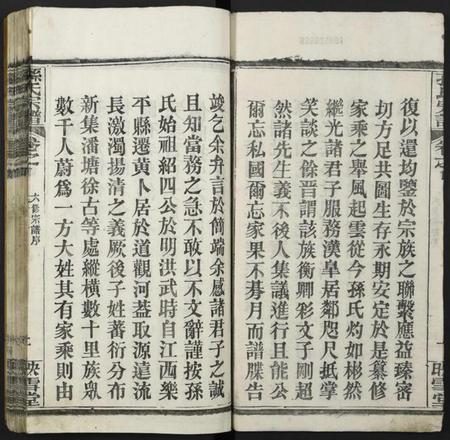 復以還均鑒於宗族之聯繫應益臻密
切方足共圖生存永期安定於是纂修
家乘之舉風起雲從今孫氏灼如彬然
繼光諸君子服務漢皐居鄰咫尺抵掌
笑談之餘晋謂該族衡卿彩文子剛超
然諸先生義不後人集議進行且能公
爾忘私國爾忘家果不朞月而譜牒告
竣乞余弁言於簡端余感諸君子之誠
且知當務之急不敢以不文辭謹按孫
氏始祖紹四公於明洪武時自江西樂
平縣遷黃卜居於道觀河蓋取源遠流
長激濁揚清之義厥後子姓蕃衍分布
新集潘塘徐古等處縱橫數十里族眾
數千人蔚爲一方大姓其有家乘則由
孫氏宗譜
卷之首
六修宗譜序
映雪堂